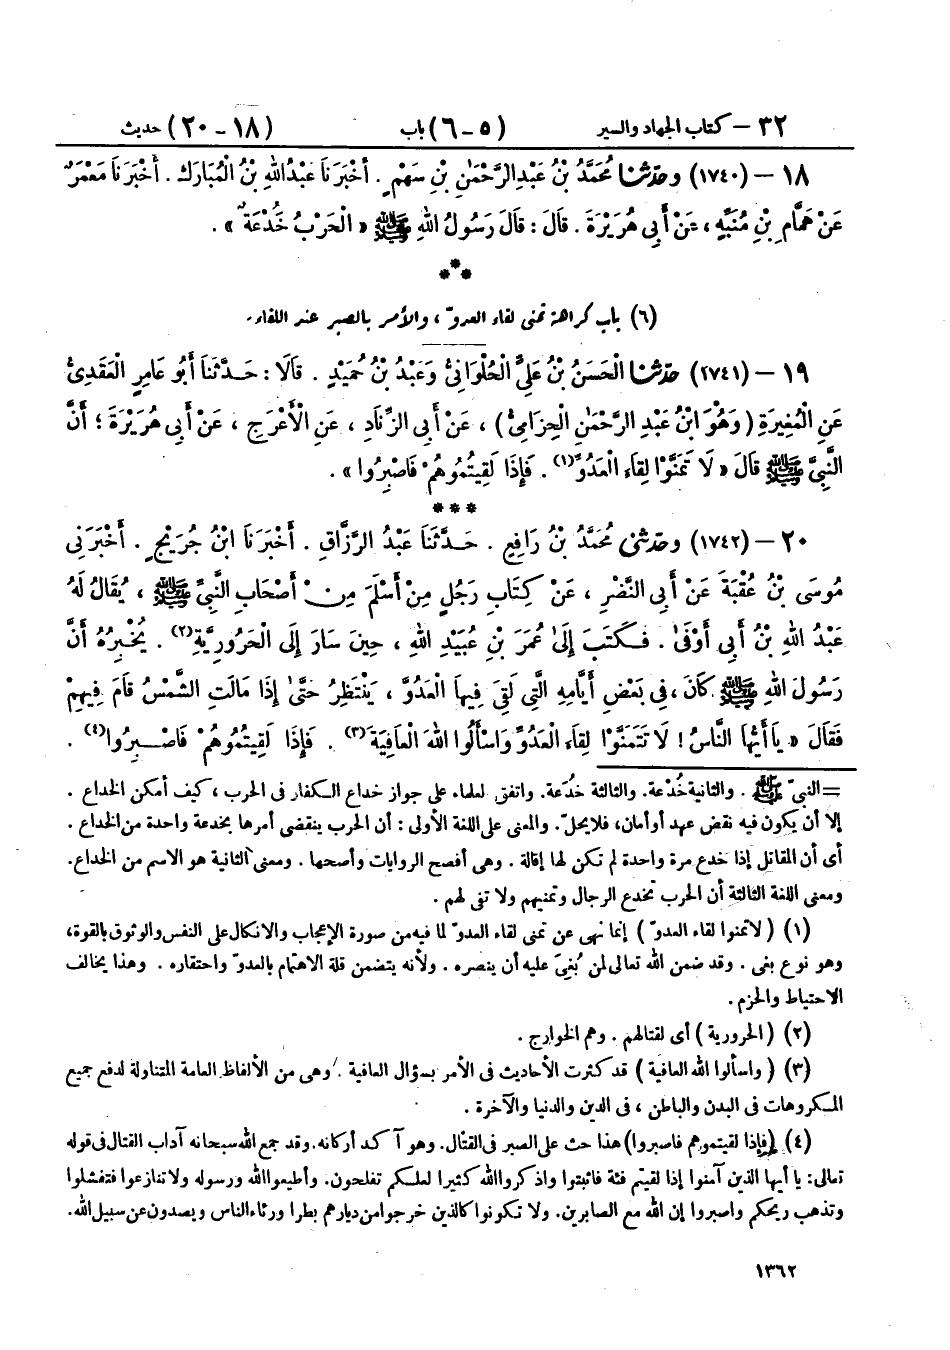 ٣٢ – كتاب الجهاد والسير (٥ – ٦) باب (١٨ – ٢٠) حديث
١٨ – (١٧٤٠) وحدثنا مُحَمَّدُ بْنُ عَبْدِالرَّحْمٰنِ بْنِ سَهْمٍ . أَخْبَرَنَا عَبْدُاللهِ بْنُ الْمُبَارَكِ . أَخْبَرَنَا مَعْمَرٌ
عَنْ هَمَّامِ بْنِ مُنَبِّهٍ ، عَنْ أَبِي هُرَيْرَةَ . قَالَ : قَالَ رَسُولُ اللهِ ﷺ « الْحَرْبُ خُدْعَةٌ » .
***
(٦) باب كراهة تمنى لقاء العدوّ ، والأمر بالصبر عند اللقاء.
١٩ – (١٧٤١) حدثنا الْحَسَنُ بْنُ عَلِيٍّ الْحُلْوَانِيُّ وَعَبْدُ بْنُ حُمَيْدٍ . قَالَا : حَدَّثَنَا أَبُو عَامِرٍ الْعَقَدِيُّ
عَنِ الْمُغِيرَةِ ( وَهُوَ ابْنُ عَبْدِ الرَّحْمٰنِ الْحِزَامِيُّ ) ، عَنْ أَبِي الزِّنَادِ ، عَنِ الْأَعْرَجِ ، عَنْ أَبِي هُرَيْرَةَ ؛ أَنَّ
النَّبِيَّ ﷺ قَالَ « لَا تَمَنَّوْا لِقَاءَ الْعَدُوِّ(١) . فَإِذَا لَقِيتُمُوهُمْ فَاصْبِرُوا » .
***
٢٠ – (١٧٤٢) وحدثنى مُحَمَّدُ بْنُ رَافِعٍ . حَدَّثَنَا عَبْدُ الرَّزَّاقِ . أَخْبَرَنَا ابْنُ جُرَيْجٍ . أَخْبَرَنِي
مُوسَى بْنُ عُقْبَةَ عَنْ أَبِي النَّضْرِ ، عَنْ كِتَابِ رَجُلٍ مِنْ أَسْلَمَ مِنْ أَصْحَابِ النَّبِيِّ ﷺ ، يُقَالُ لَهُ
عَبْدُ اللهِ بْنُ أَبِي أَوْفَىٰ . فَكَتَبَ إِلَىٰ عُمَرَ بْنِ عُبَيْدِ اللهِ ، حِينَ سَارَ إِلَى الْحَرُورِيَّةِ(٢) . يُخْبِرُهُ أَنَّ
رَسُولَ اللهِ ﷺ كَانَ ، فِي بَعْضِ أَيَّامِهِ الَّتِي لَقِيَ فِيهَا الْعَدُوَّ ، يَنْتَظِرُ حَتَّىٰ إِذَا مَالَتِ الشَّمْسُ قَامَ فِيهِمْ
فَقَالَ « يَا أَيُّهَا النَّاسُ ! لَا تَتَمَنَّوْا لِقَاءَ الْعَدُوِّ وَاسْأَلُوا اللهَ الْعَافِيَةَ(٣) . فَإِذَا لَقِيتُمُوهُمْ فَاصْبِرُوا(٤) .
= النبيّ ﷺ . والثانية خُدْعة. والثالثة خُدَعة. واتفق العلماء على جواز خداع الكفار فى الحرب ، كيف أمكن الخداع .
إلا أن يكون فيه نقض عهد أو أمان، فلا يحلّ. والمعنى على اللغة الأولى : أن الحرب ينقضى أمرها بخدعة واحدة من الخداع .
أى أن المقاتل إذا خدع مرة واحدة لم تكن لها إقالة . وهى أفصح الروايات وأصحها . ومعنى الثانية هو الاسم من الخداع.
ومعنى اللغة الثالثة أن الحرب تخدع الرجال وتمنيهم ولا تفى لهم .
(١) ( لاتمنوا لقاء العدوّ ) إنما نهى عن تمنى لقاء العدوّ لما فيه من صورة الإعجاب والاتكال على النفس والوثوق بالقوة،
وهو نوع بغى . وقد ضمن الله تعالى لمن بُغىَ عليه أن ينصره . ولأنه يتضمن قلة الاهتمام بالعدوّ واحتقاره . وهذا يخالف
الاحتياط والحزم .
(٢) ( الحرورية ) أى لقتالهم . وهم الخوارج .
(٣) ( واسألوا الله العافية ) قد كثرت الأحاديث فى الأمر بسؤال العافية . وهى من الألفاظ العامة المتناولة لدفع جميع
المكروهات فى البدن والباطن ، فى الدين والدنيا والآخرة .
(٤) (فإذا لقيتموهم فاصبروا) هذا حث على الصبر فى القتال. وهو آكد أركانه. وقد جمع الله سبحانه آداب القتال فى قوله
تعالى: يا أيها الذين آمنوا إذا لقيتم فئة فاثبتوا واذكروا الله كثيرا لعلكم تفلحون. وأطيعوا الله ورسوله ولا تنازعوا فتفشلوا
وتذهب ريحكم واصبروا إن الله مع الصابرين. ولا تكونوا كالذين خرجوا من ديارهم بطرا ورئاء الناس ويصدون عن سبيل الله.
١٣٦٢